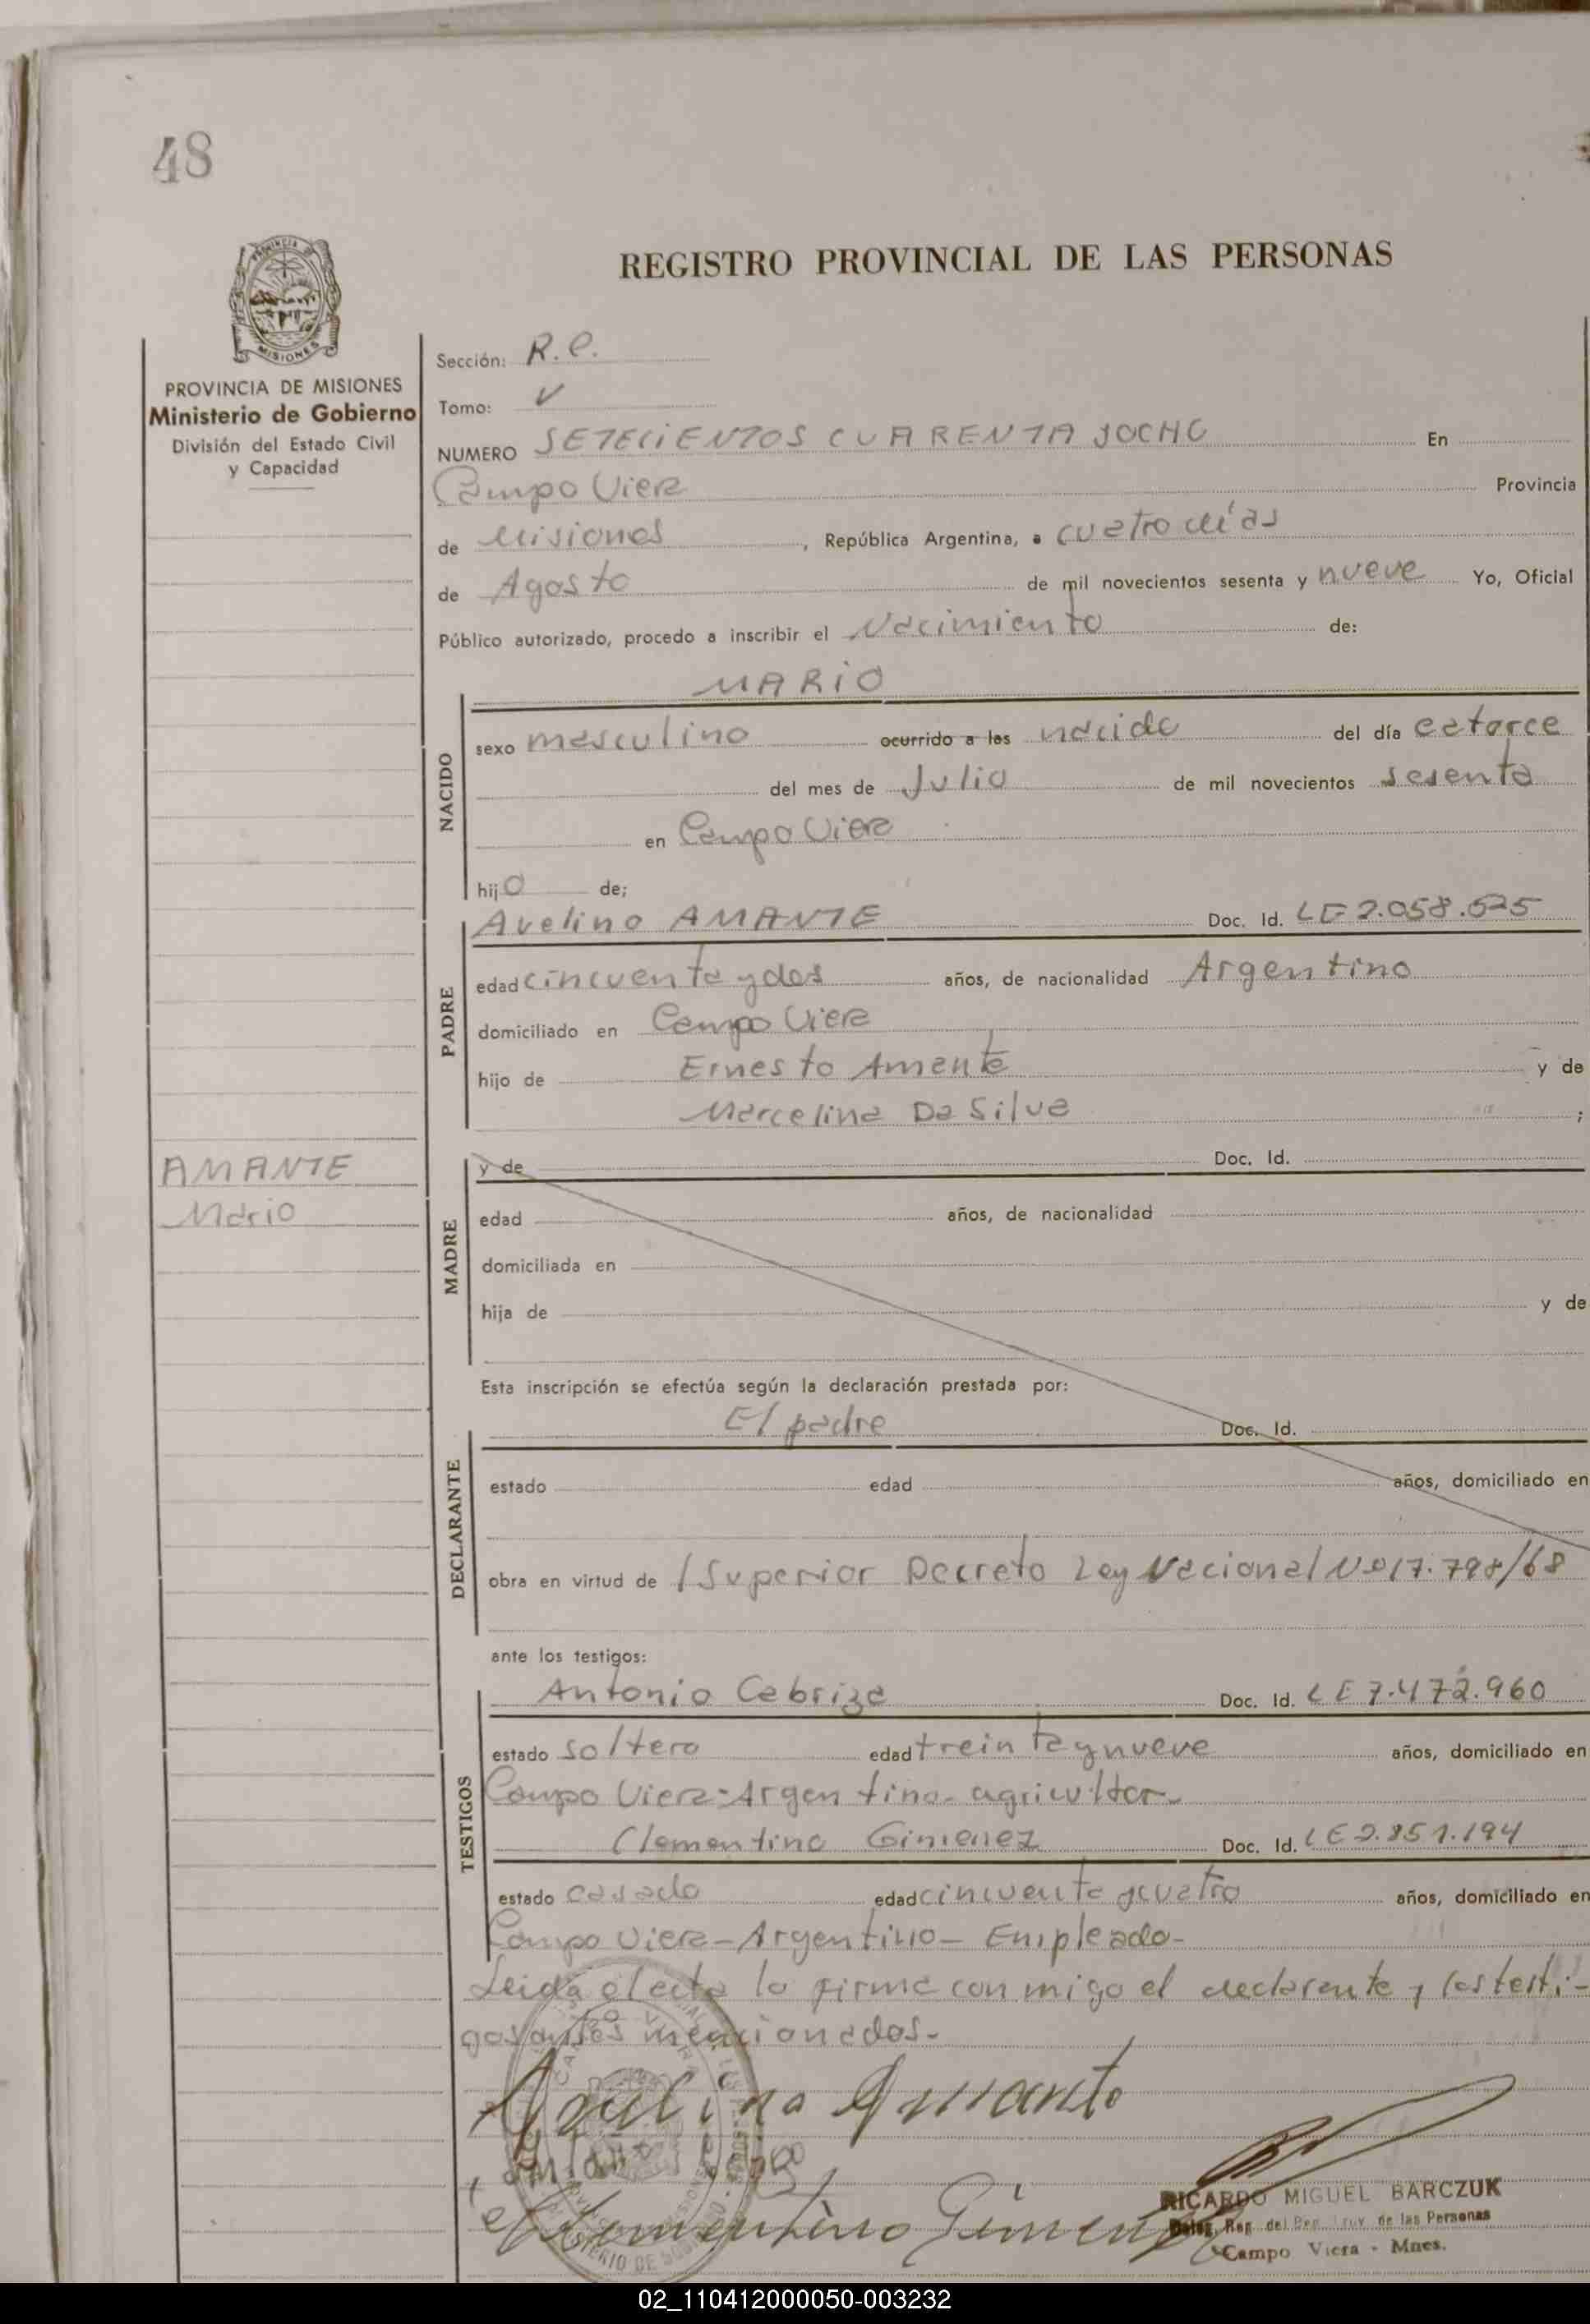 48
REGISTRO PROVINCIAL DE LAS PERSONAS
PROVINCIA DE MISIONES
Ministerio de Gobierno
División del Estado Civil
y Capacidad
Sección: R.C.
Tomo: V
NUMERO SETECIENTOS CUARENTA YOCHO En
Campo Viera Provincia
de Misiones, República Argentina, a cuatro días
de Agosto de mil novecientos sesenta y nueve Yo, Oficial
Público autorizado, procedo a inscribir el Nacimiento de:
MARIO
NACIDO
sexo masculino ocurrido a las nacido del día catorce
del mes de Julio de mil novecientos sesenta
en Campo Viera
hijo de;
PADRE
Avelino AMANTE Doc. Id. LE 2.058.525
edad cincuenta y dos años, de nacionalidad Argentino
domiciliado en Campo Viera
hijo de Ernesto Amante y de
Marcelina Da Silva ;
AMANTE
Mario
MADRE
y de Doc. Id.
edad años, de nacionalidad
domiciliada en
hija de y de
Esta inscripción se efectúa según la declaración prestada por:
DECLARANTE
El padre Doc. Id.
estado edad años, domiciliado en
obra en virtud de /Superior Decreto Ley Nacional Nº 17.798/68
ante los testigos:
TESTIGOS
Antonio Cabriza Doc. Id. LE 7.472.960
estado soltero edad treinta y nueve años, domiciliado en
Campo Viera-Argentino-agricultor-
Clementino Gimenez Doc. Id. LE 2.851.194
estado casado edad cincuenta y cuatro años, domiciliado en
Campo Viera-Argentino-Empleado-
Leida el acta la firma con migo el declarante y los testi-
gos antes mencionados.-
Avelino Amante
Clementino Gimenez
RICARDO MIGUEL BARCZUK
de las Personas
Campo Viera - Mnes.
02_110412000050-003232